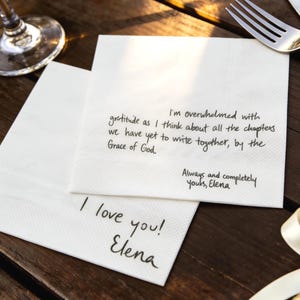 I'm overwhelmed with
gratitude as I think about all the chapters
we have yet to write together, by the
Grace of God.
Always and completely
yours, Elena
I love you!
Elena